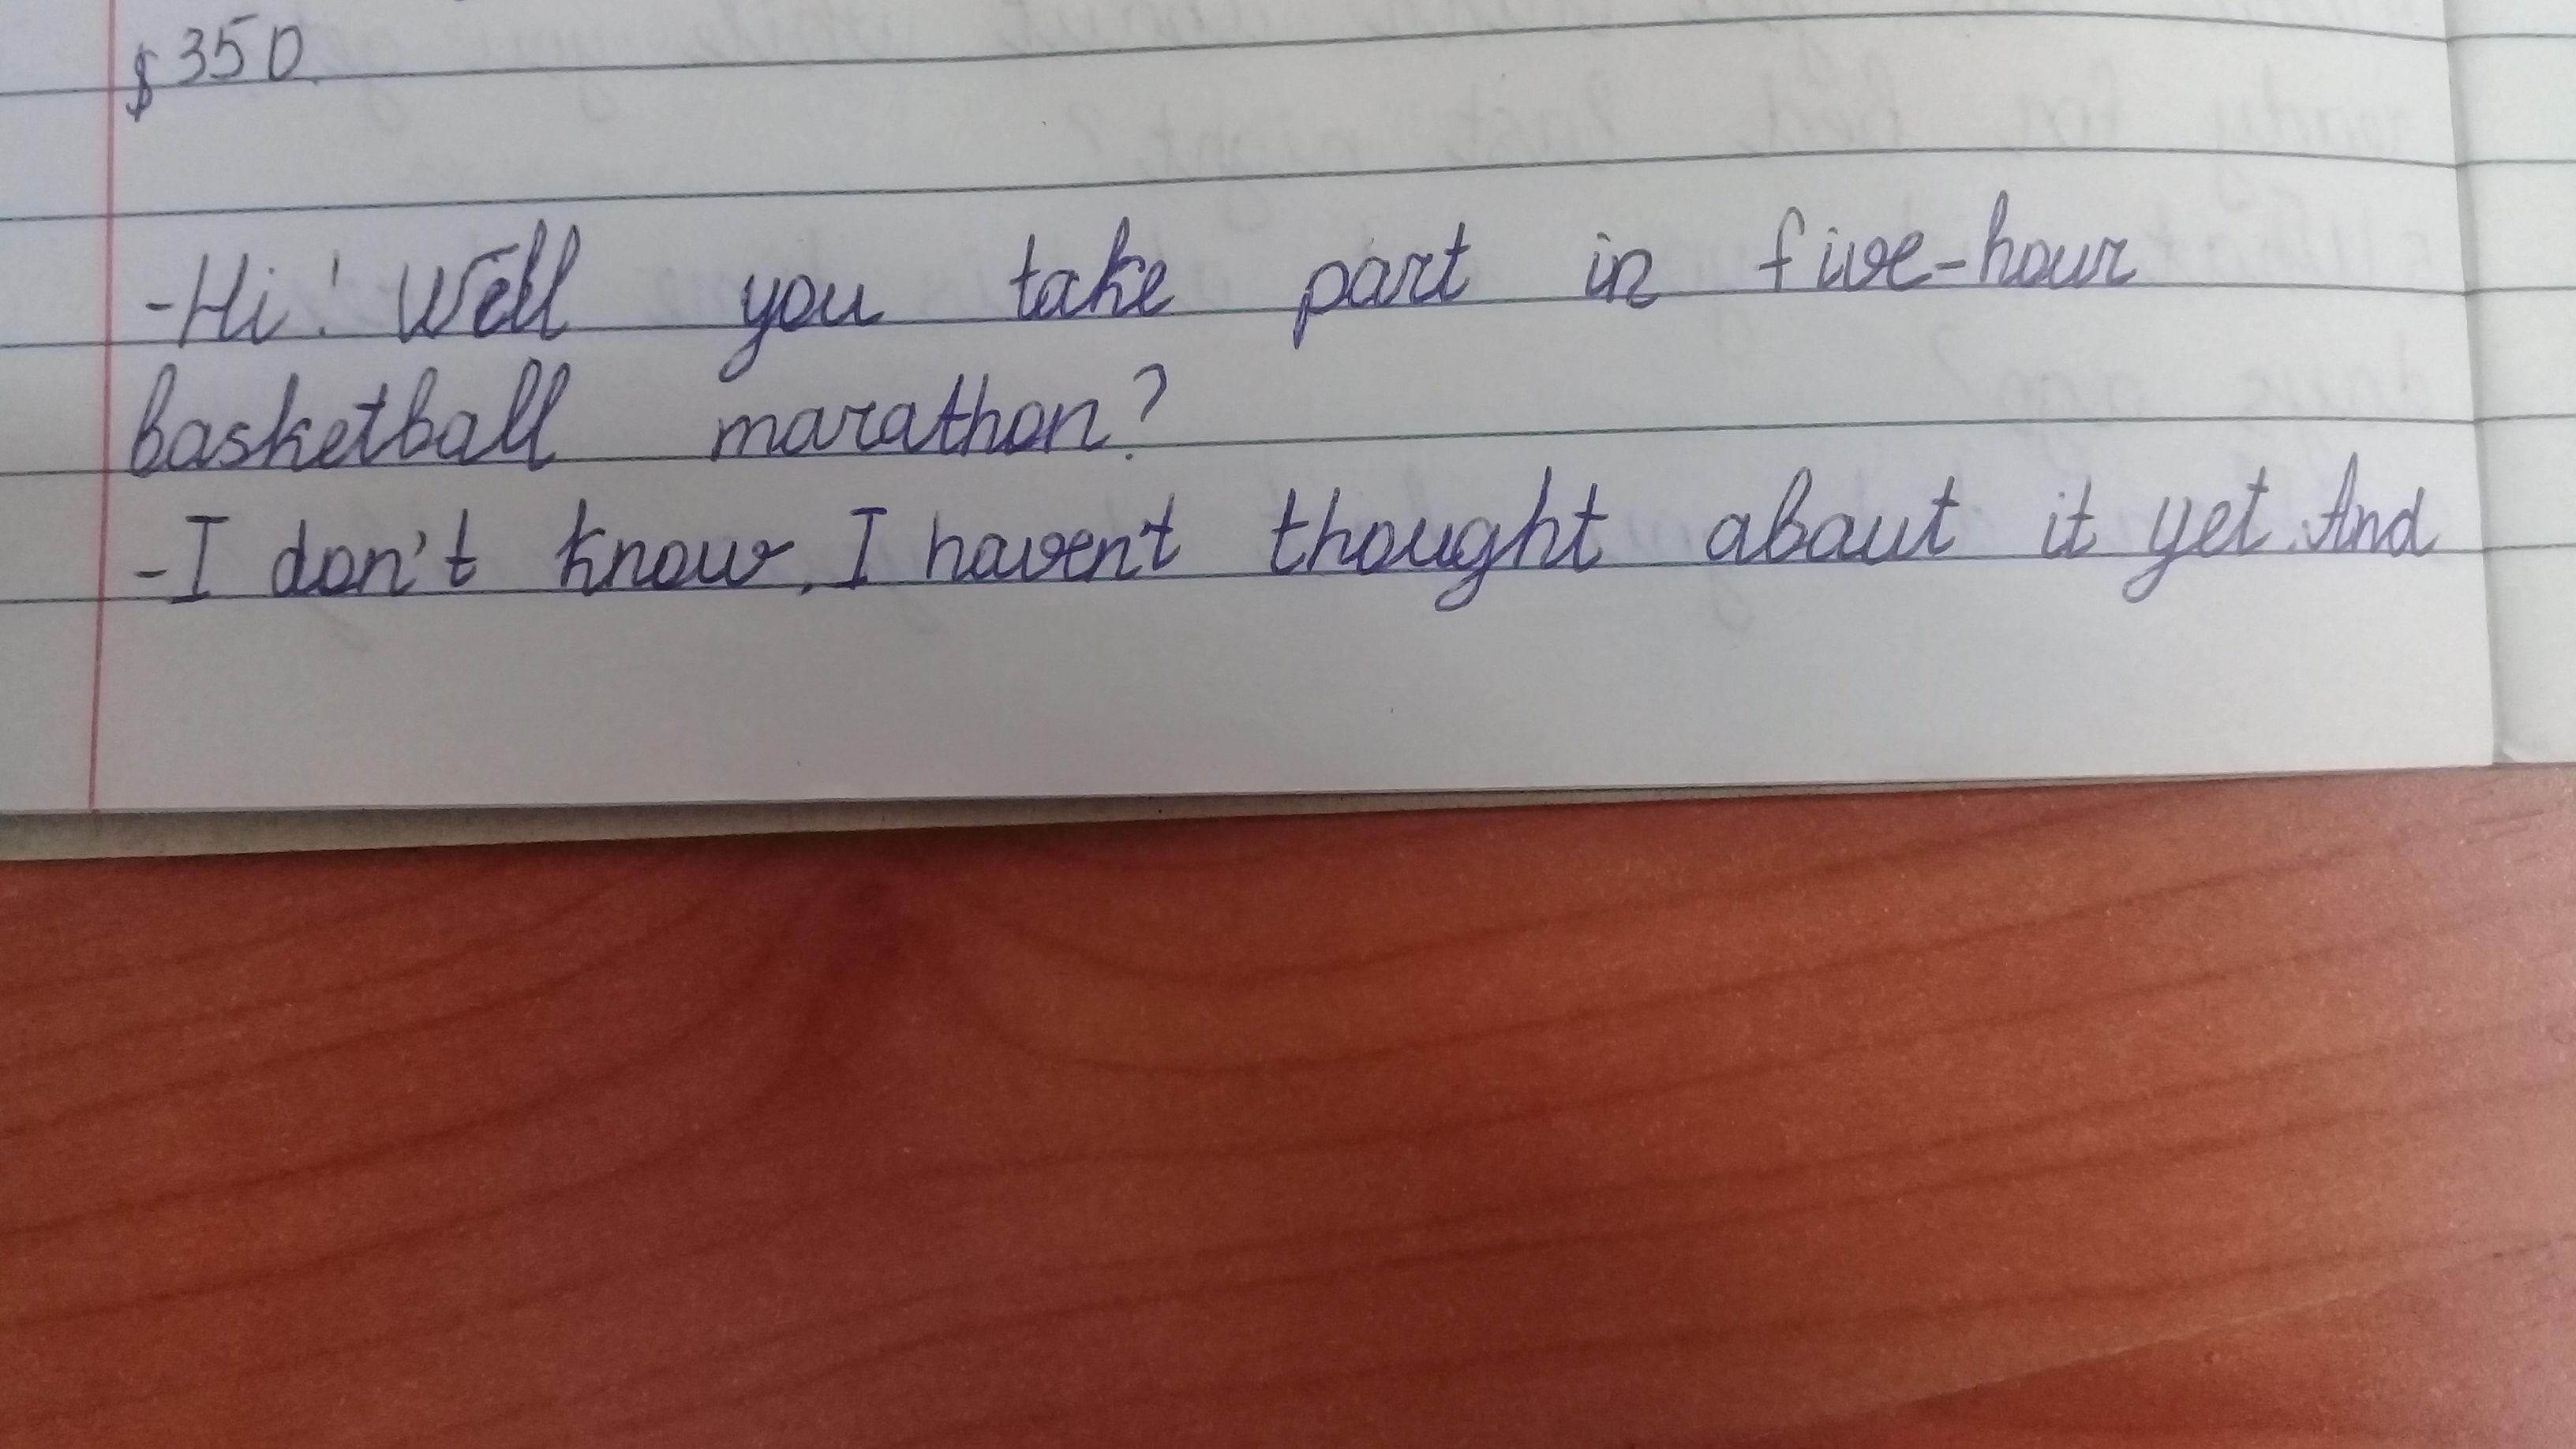 $350
-Hi! Well you take part in five-hour
basketball marathon?
-I don't know, I haven't thought about it yet. And